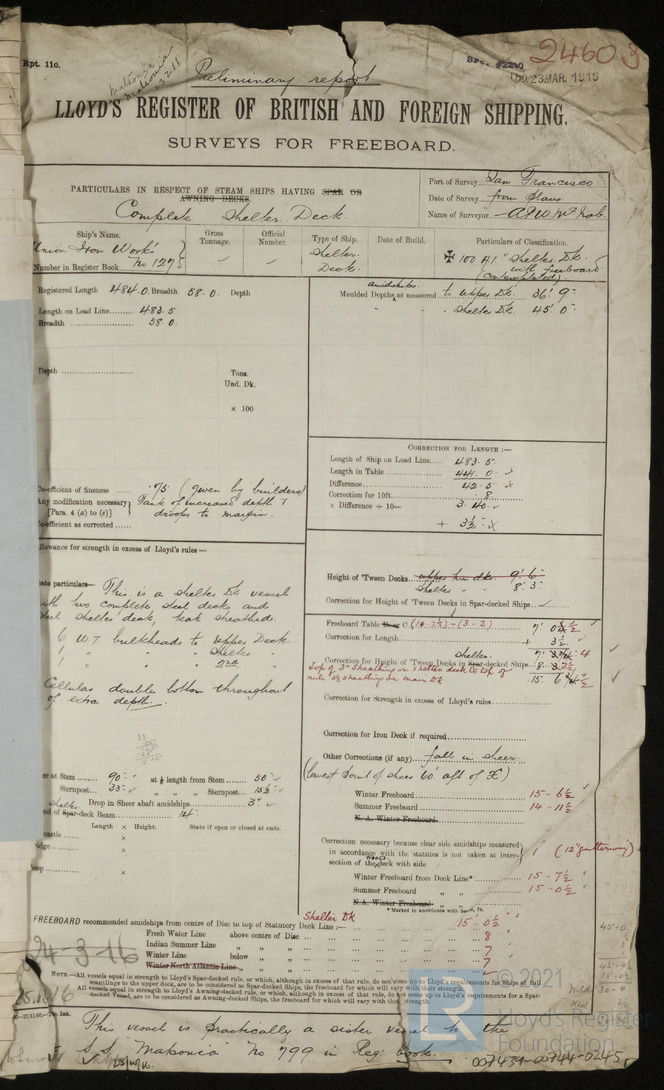 Rpt. 11c.
Preliminary report
24603
23 MAR. 1916
LLOYD'S REGISTER OF BRITISH AND FOREIGN SHIPPING.
SURVEYS FOR FREEBOARD.
PARTICULARS IN RESPECT OF STEAM SHIPS HAVING SPAR OR
AWNING DECKS.
Complete Shelter Deck.
Port of Survey San Francisco
Date of Survey from Plans
Name of Surveyor
Ship's Name.
Gross Tonnage.
Official Number.
Type of Ship.
Date of Build.
Particulars of Classification.
Union Iron Works
No 127
Number in Register Book
Shelter Deck.
✠ 100 A1 "Shelter Dk.
with freeboard
(Contemplated)
Registered Length 484.0 Breadth 58.0 Depth
Length on Load Line 483.5
Breadth 58.0
Depth
Tons.
Und. Dk.
× 100
amidships
Moulded Depths as measured to Upper Dk. 36' 9"
" " Shelter Dk. 45' 0"
CORRECTION FOR LENGTH :—
Length of Ship on Load Line 483.5
Length in Table 441.0
Difference 42.5
Correction for 10ft. .8
× Difference ÷ 10= 3.40
+ 3½"
Co-efficient of fineness .75 (given by builders)
Any modification necessary [Para. 4 (a) to (e)] Tank of increased depth &
droops to margin.
Co-efficient as corrected
Allowance for strength in excess of Lloyd's rules—
State particulars— This is a shelter Dk vessel
with two complete steel decks and
steel shelter deck, teak sheathed.
6 W T bulkheads to Upper Deck
1 " " " Shelter "
1 " " " 2nd "
Cellular double bottom throughout
of extra depth.
Height of 'Tween Decks upper twn dks 9' 6"
Shelter " 8' 3"
Correction for Height of 'Tween Decks in Spar-decked Ships
Freeboard Table
Correction for Length + 3½
Shelter
Correction for Height of 'Tween Decks in Spar-decked Ships
Top of 3" sheathing on shelter deck to top of
rule 3½ sheathing on main Dk
Correction for Strength in excess of Lloyd's rules
Correction for Iron Deck if required
Other Corrections (if any) fall in sheer
(lowest point of sheer 60' aft of )
Sheer at Stem 90" at ⅛ length from Stem 50"
Sternpost 33" " " Sternpost 15½"
Drop in Sheer abaft amidships 3"
Shelter
Round of Spar-deck Beam 14"
Length × Height. State if open or closed at ends.
Winter Freeboard 15 - 6½
Summer Freeboard 14 - 11½
N. A. Winter Freeboard
Correction necessary because clear side amidships measured
in accordance with the statutes is not taken at inter-
section of the Wood deck with side
1 (12" guttering)
Winter Freeboard from Deck Line* 15 - 7½
Summer Freeboard " " 15 - 0½
N. A. Winter Freeboard " "
FREEBOARD recommended amidships from centre of Disc to top of Statutory Deck Line :—
Shelter Dk
15 - 0½
Fresh Water Line above centre of Disc 8
Indian Summer Line " " " 7
Winter Line below " " 7
Winter North Atlantic Line " " "
24-3-16
NOTE.—All vessels equal in strength to Lloyd's Spar-decked rule, or which, although in excess of that rule, do not come up to Lloyd's requirements for Ships of full
scantlings to the upper deck, are to be considered as Spar-decked Ships, the freeboard for which will vary with their strength.
All vessels equal in strength to Lloyd's Awning-decked rule, or which, although in excess of that rule, do not come up to Lloyd's requirements for a Spar-
decked Vessel, are to be considered as Awning-decked Ships, the freeboard for which will vary with their strength.
This vessel is practically a sister vessel to the
S.S. "Matsonia" No 799 in Reg. Book.
© 2021
Lloyd's Register
Foundation
LR
007431-007441-0245